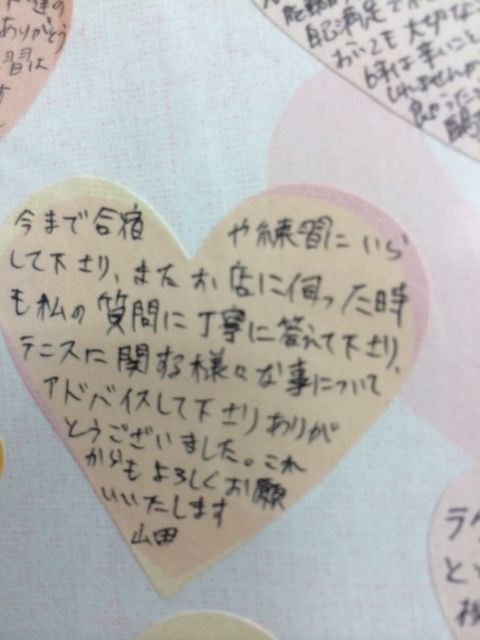 ありがとう
習は
自己満足で
おいても大切な
今まで合宿 や練習にいら
して下さり、またお店に伺った時
も私の質問に丁寧に答えて下さり、
テニスに関する様々な事について
アドバイスして下さりありが
とうございました。これ
からもよろしくお願
いいたします
山田
ラ
と